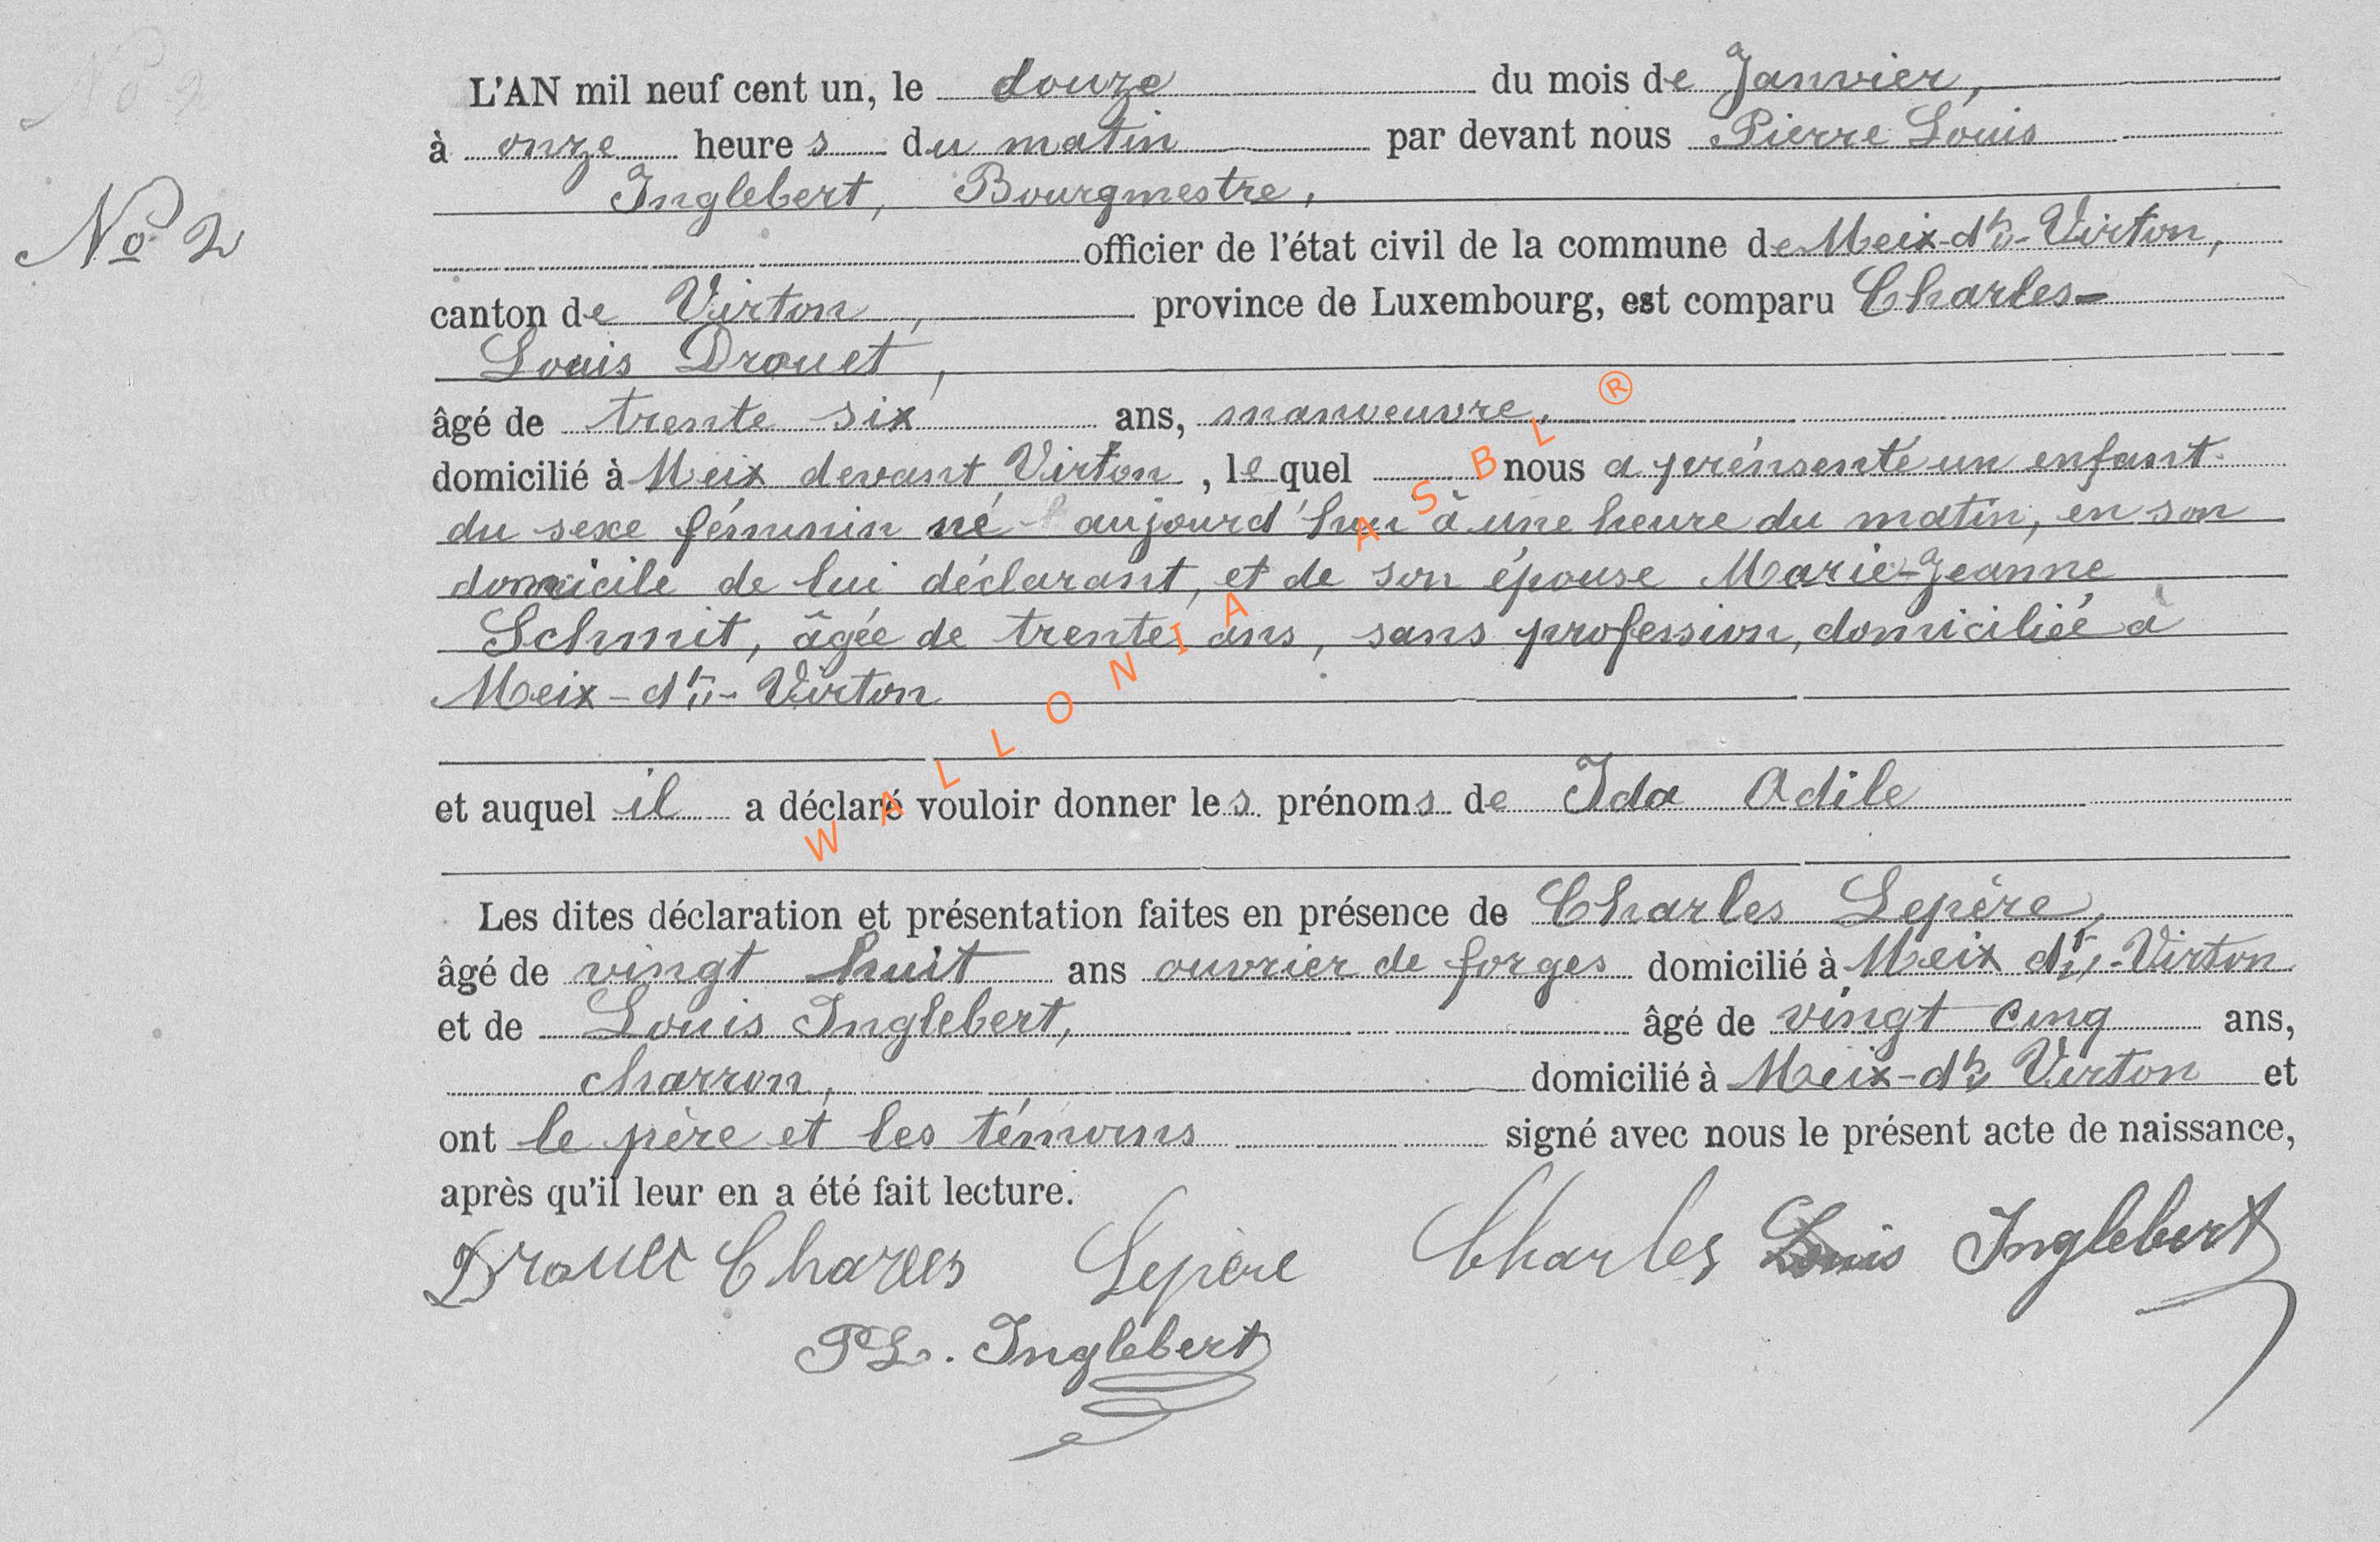 No 2
L'AN mil neuf cent un, le douze du mois de Janvier,
à onze heures du matin par devant nous Pierre Louis
Inglebert, Bourgmestre,
officier de l'état civil de la commune de Meix-dt-Virton,
canton de Virton, province de Luxembourg, est comparu Charles-
Louis Drouet,
âgé de trente six ans, manoeuvre,
domicilié à Meix devant Virton, lequel nous a prénsenté un enfant
du sexe féminin né aujourd'hui à une heure du matin, en son
domicile de lui déclarant, et de son épouse Marie-Jeanne
Schmit, âgée de trente ans, sans profession, domiciliée à
Meix-dt-Virton
et auquel il a déclaré vouloir donner les prénoms de Ida Odile
Les dites déclaration et présentation faites en présence de Charles Lepère,
âgé de vingt huit ans ouvrier de forges domicilié à Meix dt-Virton
et de Louis Inglebert, âgé de vingt cinq ans,
charron, domicilié à Meix-dt Virton et
ont le père et les témoins signé avec nous le présent acte de naissance,
après qu'il leur en a été fait lecture.
Drouet Charles Lepère Charles Louis Inglebert
PL. Inglebert
WALLONIA ASBL ®